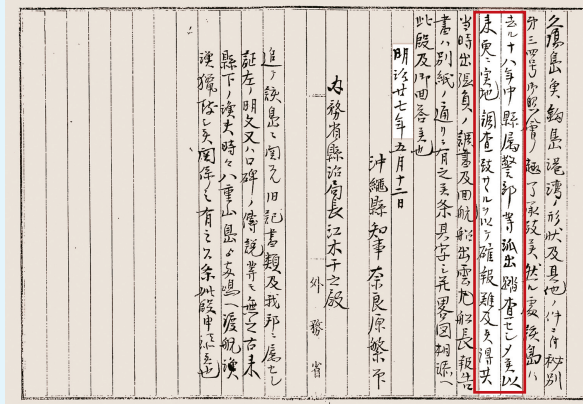 久場島魚釣島港湾ノ形状及其他ノ件ニ付秘別
第三四号御照會ノ趣了承致候然ル處該島ハ
去ル十八年中縣属警部等派出踏査セシメ候以
来更ニ実地調査致サヽルヲ以テ確報難及候得共
当時出張員ノ調書及回航船出雲丸船長報告
書ハ別紙ノ通リニ有之候条其写ニ並畧図相添ヘ
此段及御回答候也
明治廿七年五月十二日
沖繩縣知事奈良原繁
内務省縣治局長江木千之殿
追テ該島ニ関スル旧記書類及我邦ニ属セシ
証左ノ明文又ハ口碑ノ傳説等モ無之古来
縣下ノ漁夫時々八重山島ヨリ両島ヘ渡航漁
漁獵致シ候関係ノミ有之候条此段申添候也
外務省